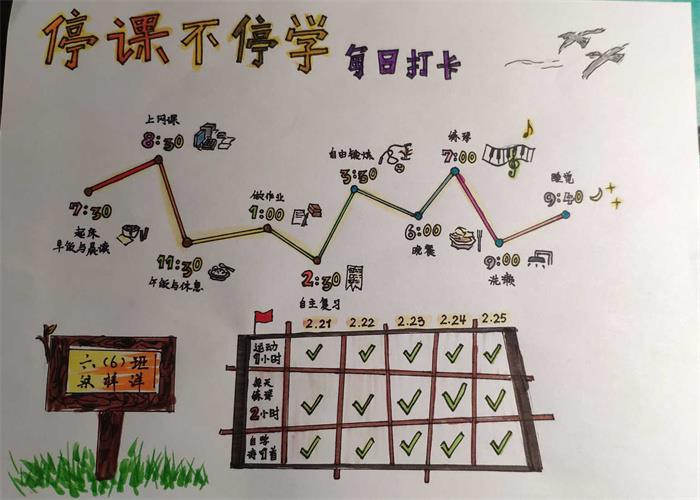 停课不停学
每日打卡
7:30
起床
早饭与晨读
上网课
8:30
11:30
午饭与休息
做作业
1:00
2:30
自主复习
自由锻炼
3:30
6:00
晚餐
练琴
7:00
9:00
洗漱
睡觉
9:40
六(6)班
梁梓洋
2.21 2.22 2.23 2.24 2.25
运动
1小时
每天
练琴
2小时
自学
诗1首